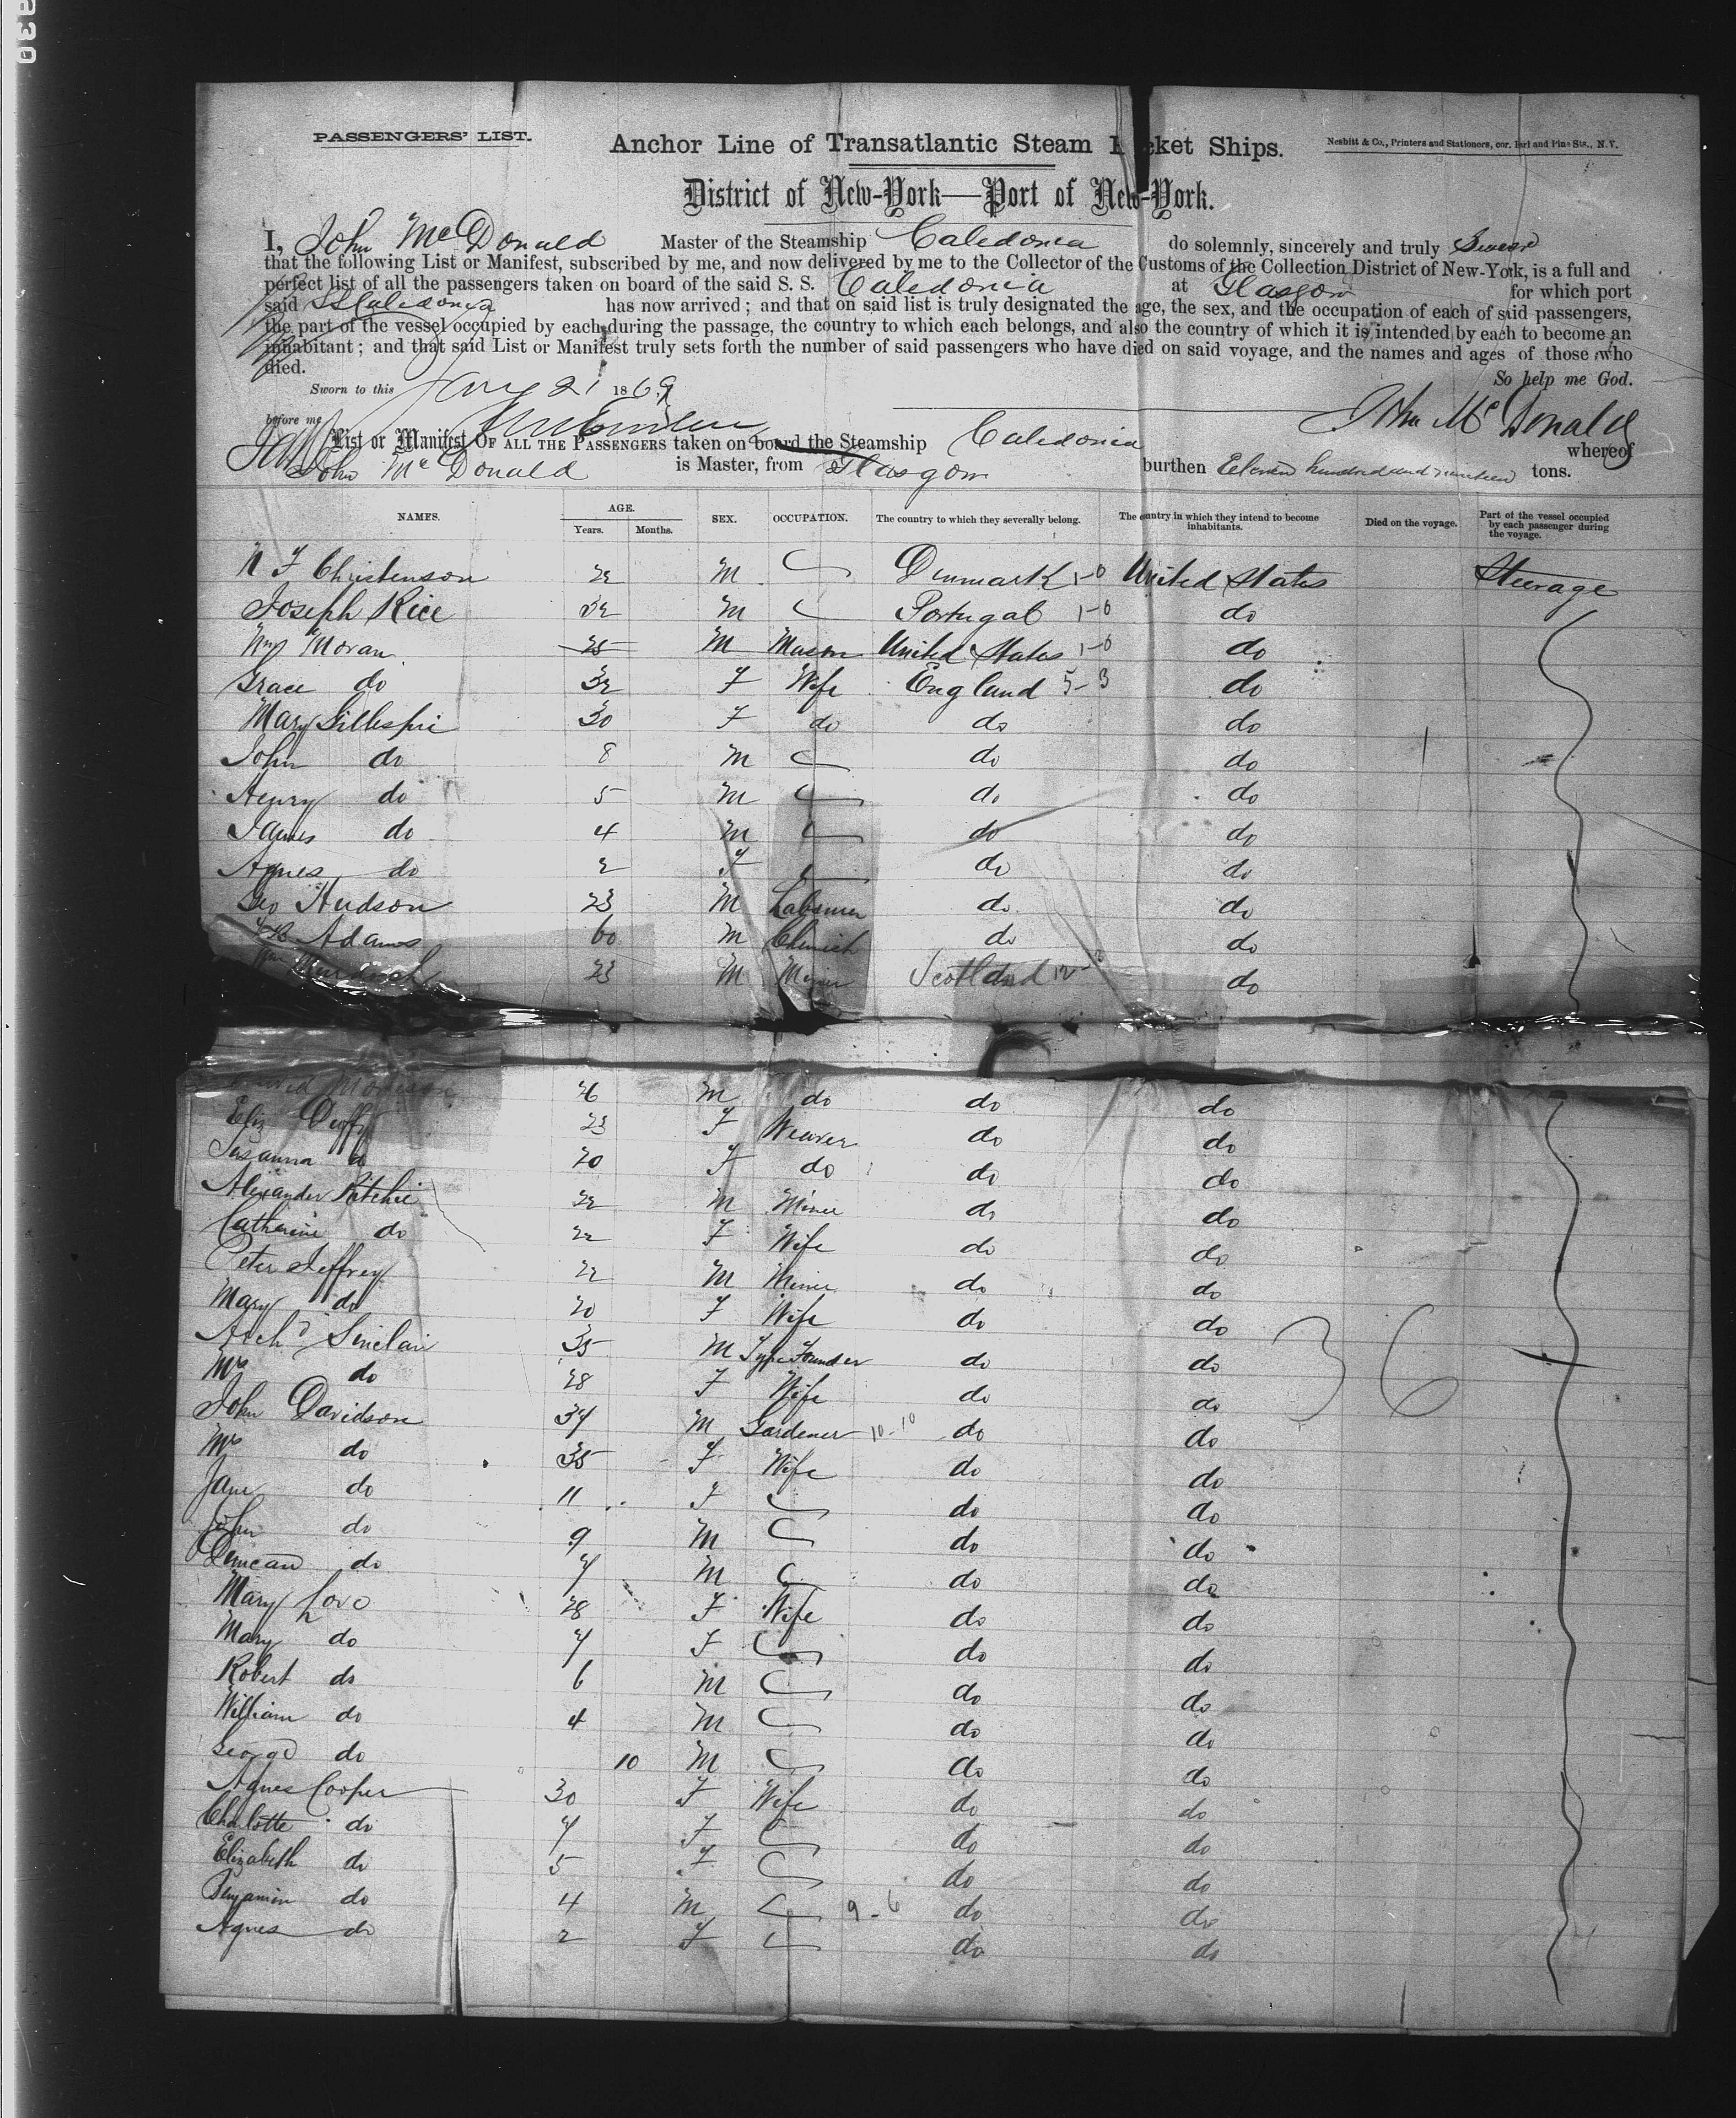 PASSENGERS' LIST.
Anchor Line of Transatlantic Steam P cket Ships.
Nesbitt & Co., Printers and Stationers, cor. Perl and Pine Sts., N.Y.
District of New-York—Port of New-York.
I, John McDonald Master of the Steamship Caledonia do solemnly, sincerely and truly Swear
that the following List or Manifest, subscribed by me, and now delivered by me to the Collector of the Customs of the Collection District of New-York, is a full and
perfect list of all the passengers taken on board of the said S. S. Caledonia at Glasgow for which port
said SS Caledonia has now arrived; and that on said list is truly designated the age, the sex, and the occupation of each of said passengers,
the part of the vessel occupied by each during the passage, the country to which each belongs, and also the country of which it is intended by each to become an
inhabitant; and that said List or Manifest truly sets forth the number of said passengers who have died on said voyage, and the names and ages of those who
died.
So help me God.
Sworn to this 21 1869
before me
John McDonald
List or Manifest OF ALL THE PASSENGERS taken on board the Steamship Caledonia whereof
John McDonald is Master, from Glasgow burthen Eleven hundred and nineteen tons.
NAMES. AGE. Years. Months. SEX. OCCUPATION. The country to which they severally belong. The country in which they intend to become inhabitants. Died on the voyage. Part of the vessel occupied by each passenger during the voyage.
N F Christenson 22 M Denmark 1-0 United States Steerage
Joseph Rice 32 M Portugal 1-0 do
Wm Moran 25 M Mason United States 1-0 do
Grace do 32 F Wife England 5-3 do
Mary Gillespie 30 F do do do
John do 8 M do do
Henry do 5 M do do
James do 4 M do do
Agnes do 2 F do do
Geo Hudson 23 M Labourer do do
Adams 60 M Chemist do do
23 M Miner Scotland 12 do
David Morrison 26 M do do do
Eliz Duffy 23 F Weaver do do
Susanna do 20 F do do do
Alexander Ritchie 22 M Miner do do
Catherine do 22 F Wife do do
Peter Jeffrey 22 M Miner do do
Mary do 20 F Wife do do
Archd Sinclair 35 M Type Founder do do
36
Mrs do 28 F Wife do do
John Davidson 34 M Gardener 10-10 do do
Mrs do 35 F Wife do do
Jane do 11 F do do
John do 9 M do do
Duncan do 7 M do do
Mary Love 28 F Wife do do
Mary do 7 F do do
Robert do 6 M do do
William do 4 M do do
George do 10 M do do
Agnes Cooper 30 F Wife do do
Charlotte do 7 F do do
Elizabeth do 5 F do do
Benjamin do 4 M 9-6 do do
Agnes do 2 F do do